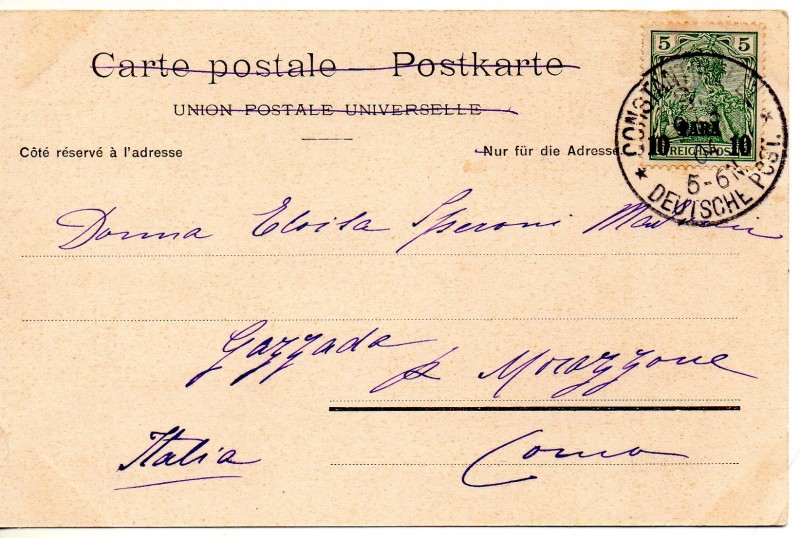 Carte postale — Postkarte
UNION POSTALE UNIVERSELLE
Côté réservé à l'adresse
Nur für die Adresse
5 5
PARA
10 10
REICHSPOST
5-6N.
DEUTSCHE POST.
Donna Eloisa Speroni
Gazzada
p. Morazzone
Italia
Como